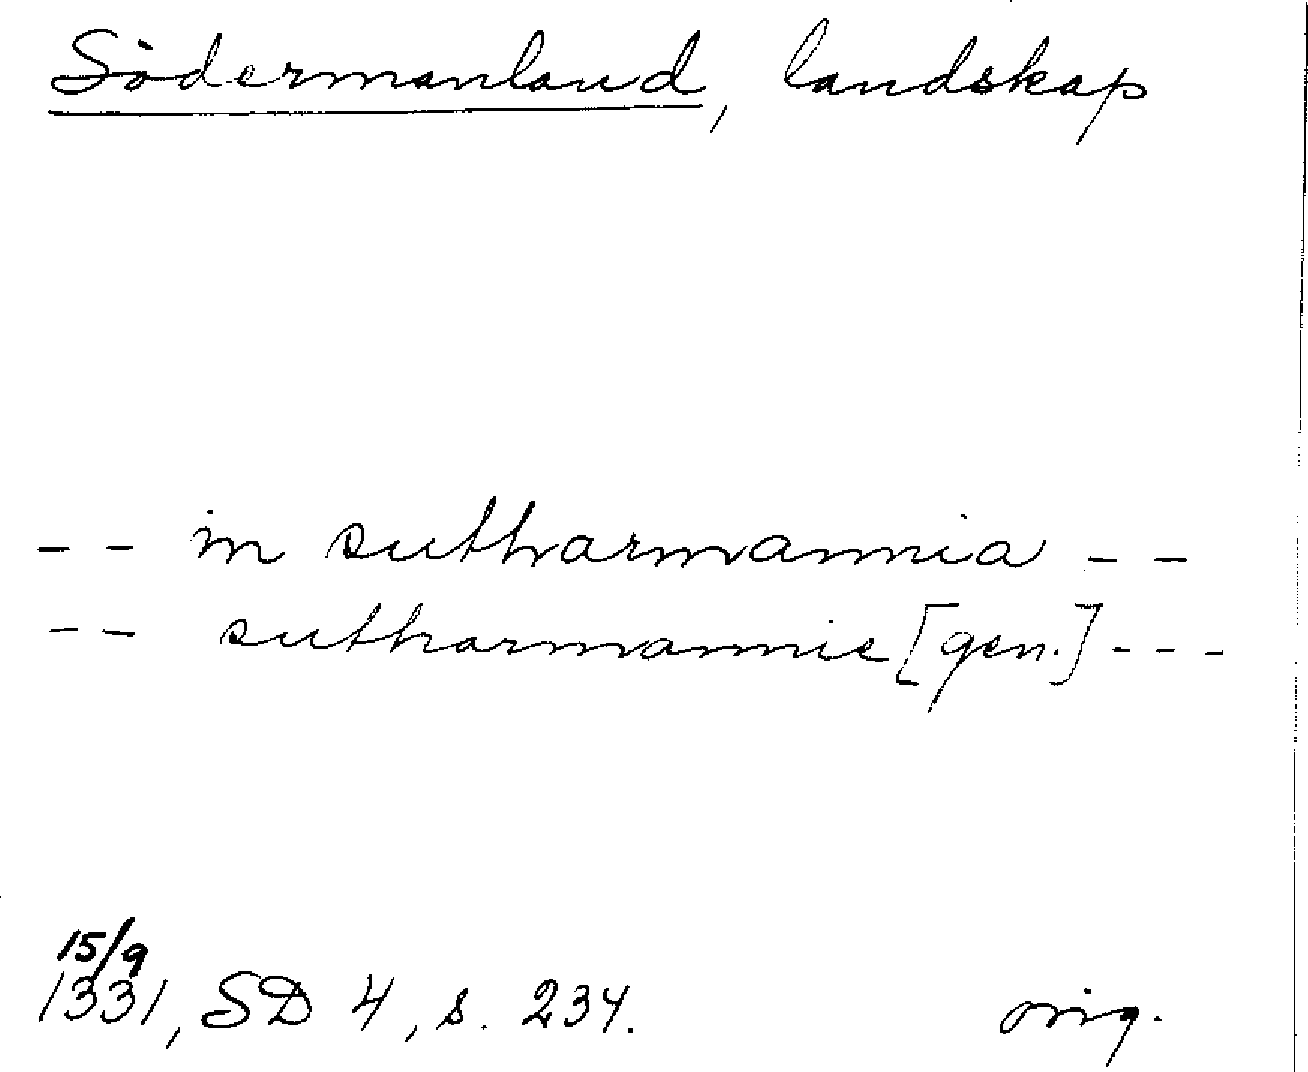 Södermanland, landskap
-- in sutharmannia --
-- sutharmannie [gen.] ---
15/9
1331, SD 4, s. 234. orig.